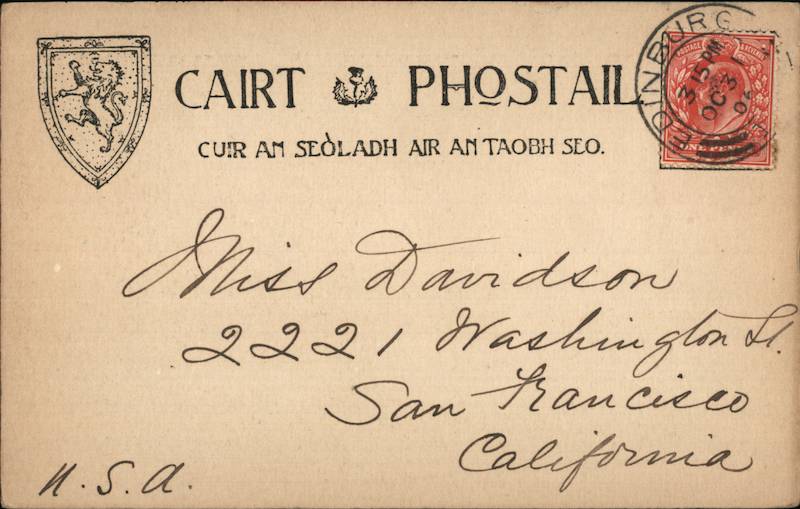 CAIRT PHOSTAIL
CUIR AN SEÒLADH AIR AN TAOBH SEO.
EDINBURG
3 15 PM
OC 3
ONE PENNY
Miss Davidson
2221 Washington St.
San Francisco
California
U.S.A.